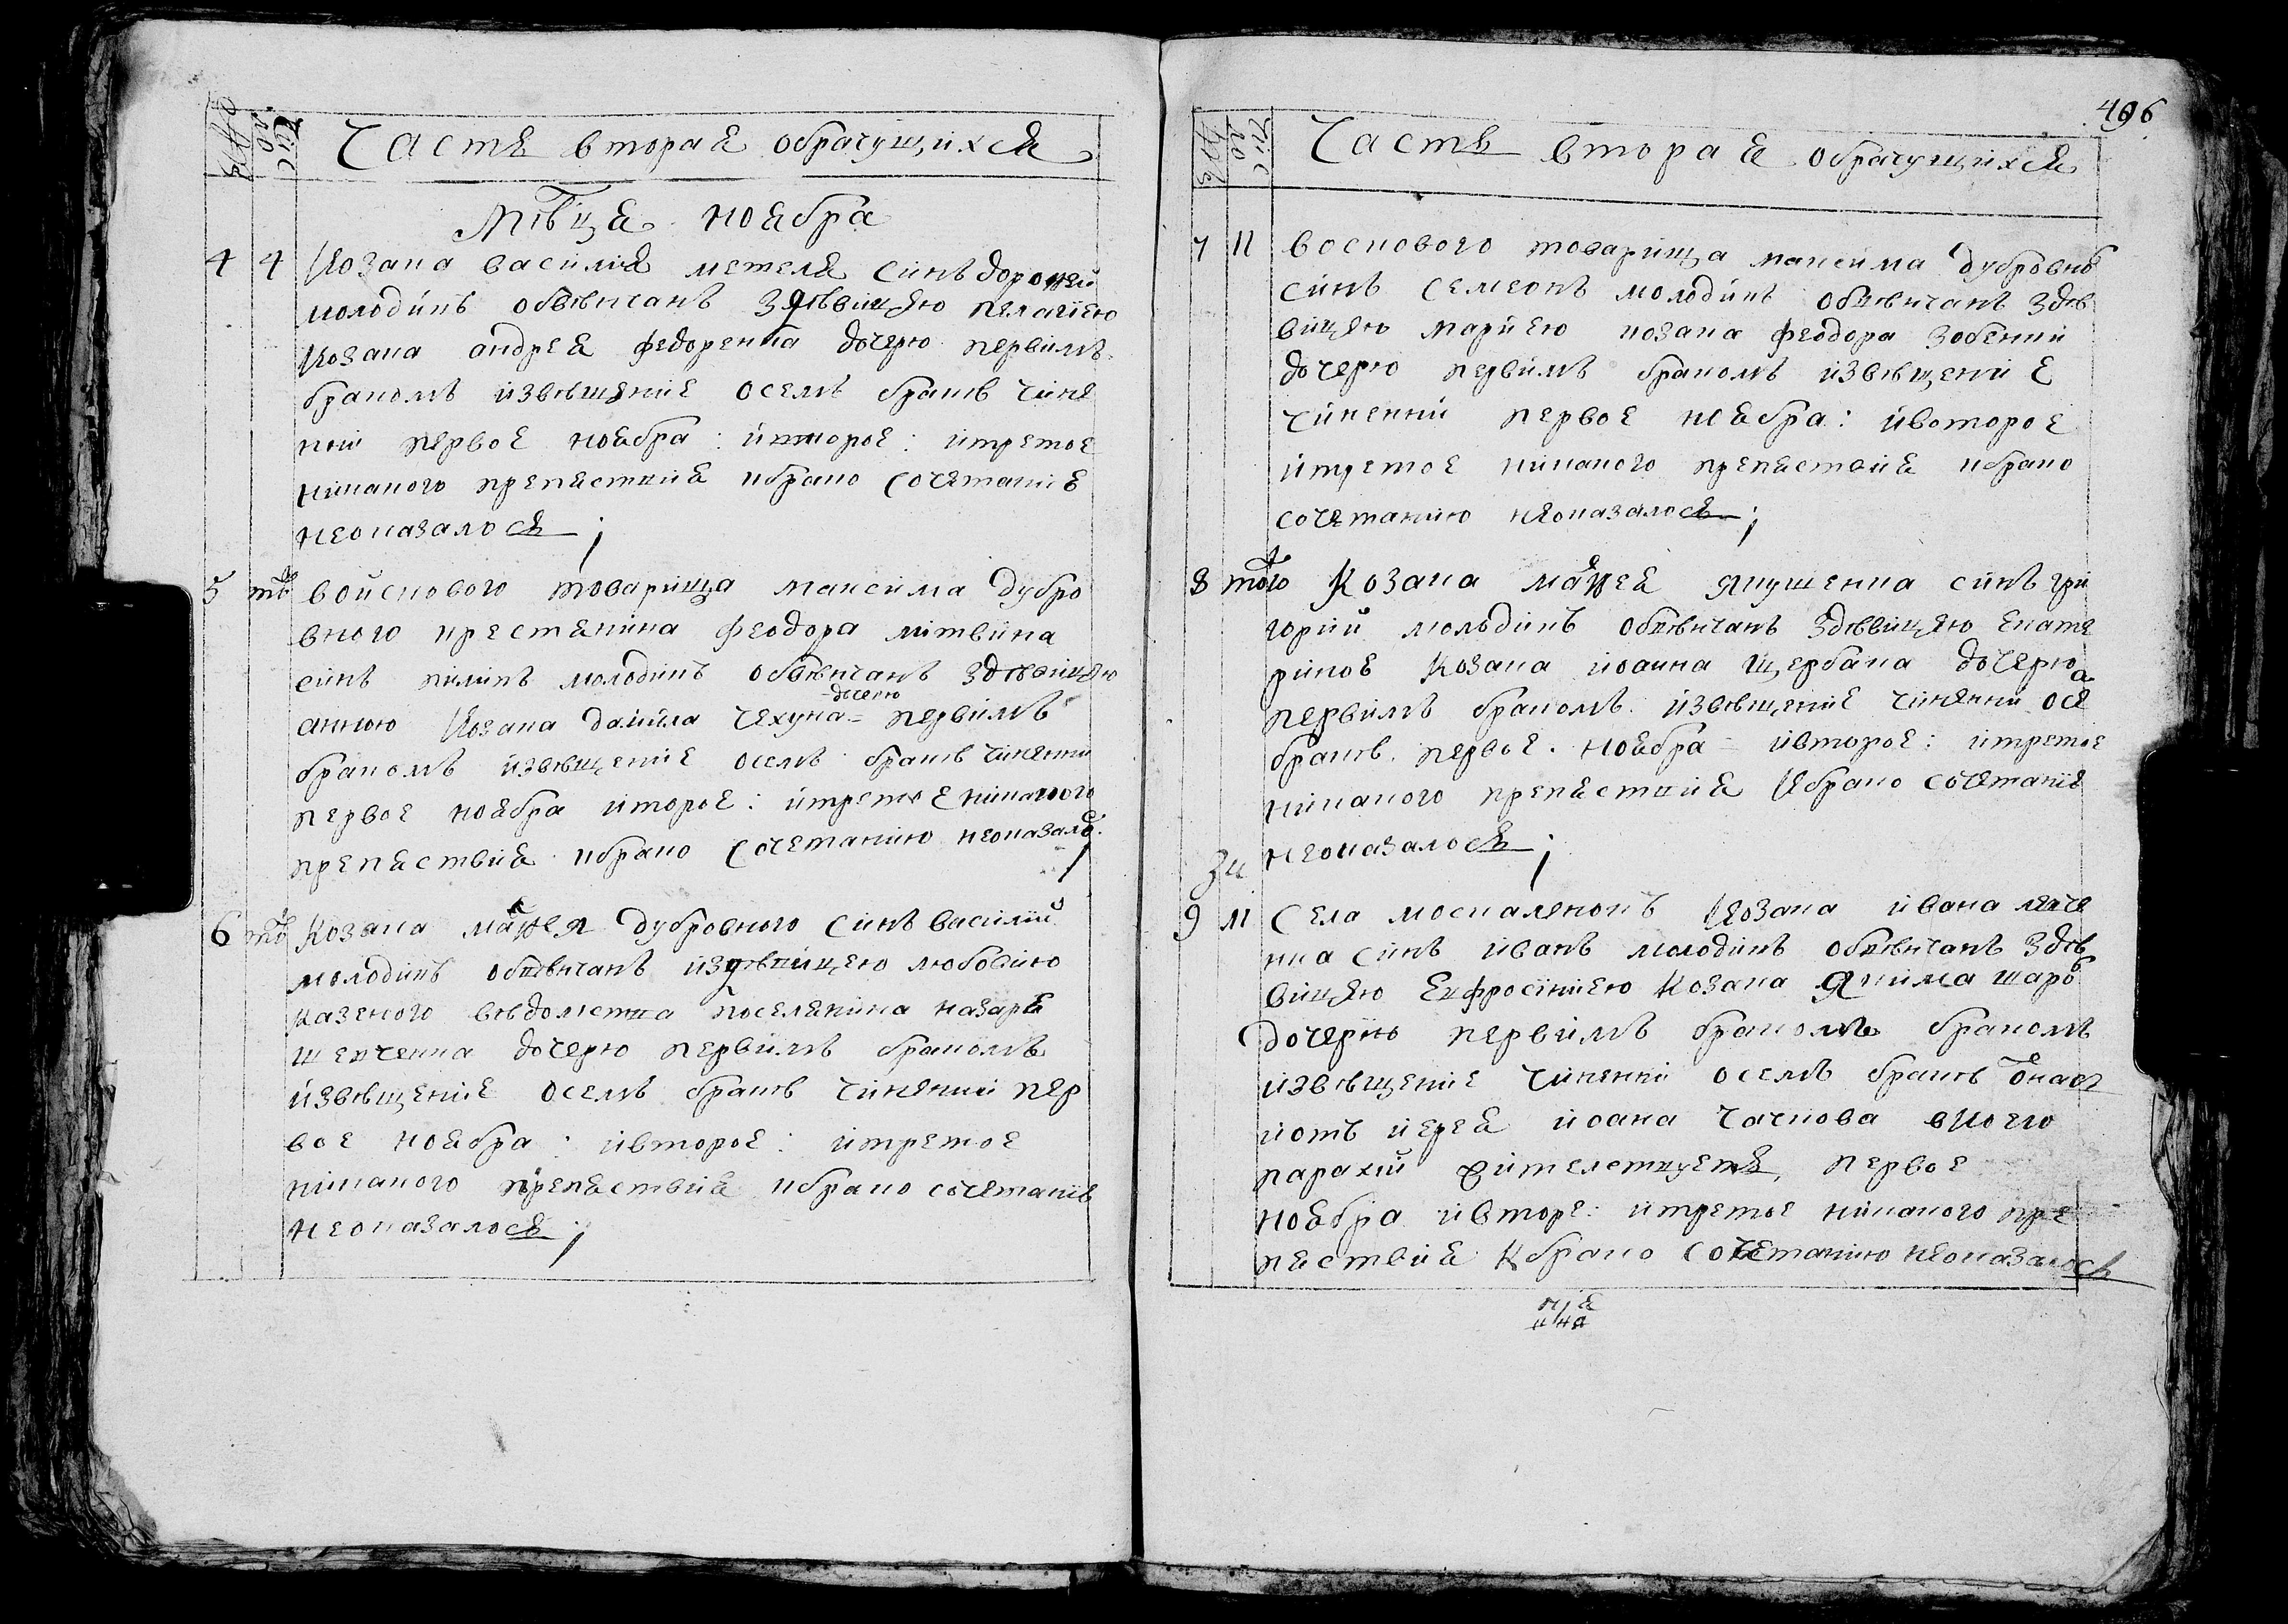 Часть вторая обрачущихся
Мѣцѧ ноября
4 4 Козака василия метеля синъ дорошей
молодикъ обвѣнчанъ здѣвицею пелагиею
козака андрея федоренка дочерю первимъ
бракомъ извѣщение оселъ бракѣ чине
ний первое ноября: ивторое: итретое
никакого препяствия кбрако сочетание
неоказалося;
5 войскового товарища максима дубро
вного крестянина феодора литвина
синъ пилипъ молодикъ обвѣнчанъ здѣвицею
анною козака данйла чехуна дочерю первимъ
бракомъ извѣщение оселъ бракѣ чинений
первое ноября иторое: итретое никакого
препяствия кбрако сочетанию неоказало
6 козака матвея дубровного синъ василий
молодикъ обвѣнчанъ издѣвицею любовию
казеного вѣдомства поселянина назаря
шевченка дочерю первимъ бракомъ
извѣщение оселъ бракѣ чинений пер
вое ноября: ивторое: итретое
никакого препяствия кбрако сочетание
неоказалося;
496
Часть вторая обрачущихся
7 11 воскового товарища максима дубровно
синъ семеонъ молодикъ обвѣнчанъ здѣ
вицею мариею козака феодора зобенки
дочерю первимъ бракомъ извѣщение
чинений первое ноября: ивоторое
итретое никакого препяствия кбрако
сочетанию неоказалось;
8 того Козака матвея якушенка синъ гри
горий мольдикъ обвѣнчанъ здѣвицею екате
риное козака иоанна щербака дочерю
первимъ бракомъ извѣщение чинений осе
бракѣ. первое. ноября ивторое: итретое
никакого препяствия кбрако сочетание
неоказалось;
9 11 Села москаленокъ козака ивана
синъ иванъ молодикъ обвѣнчанъ здѣ
вицею ефросиниею козака якима шаро
дочерию первимъ бракомъ бракомъ
извѣщение чинений оселъ бракѣ
иотъ иерея иоана чачкова вкоего
парахий первое
ноября ивторе: итретое никакого пре
пяствия кбрако сочетанию неоказалось